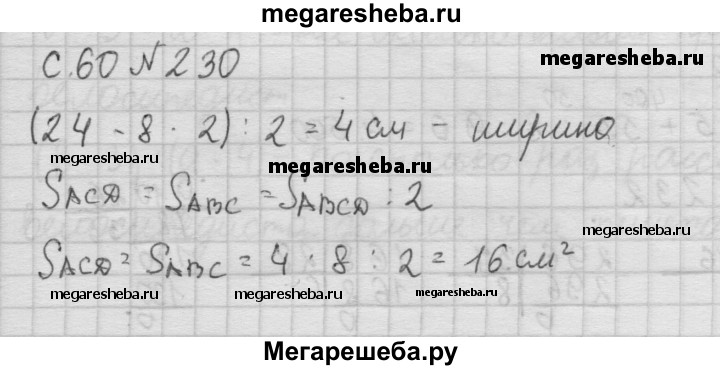 megaresheba.ru
с.60 №230
megaresheba.ru
(24 - 8 · 2) : 2 = 4 см - ширина
megaresheba.ru
megaresheba.ru
megaresheba.ru
SACD = SABC = SABCD : 2
megaresheba.ru
SACD = SABC = 4 · 8 : 2 = 16 см²
megaresheba.ru
megaresheba.ru
megaresheba.ru
Мегарешеба.ру